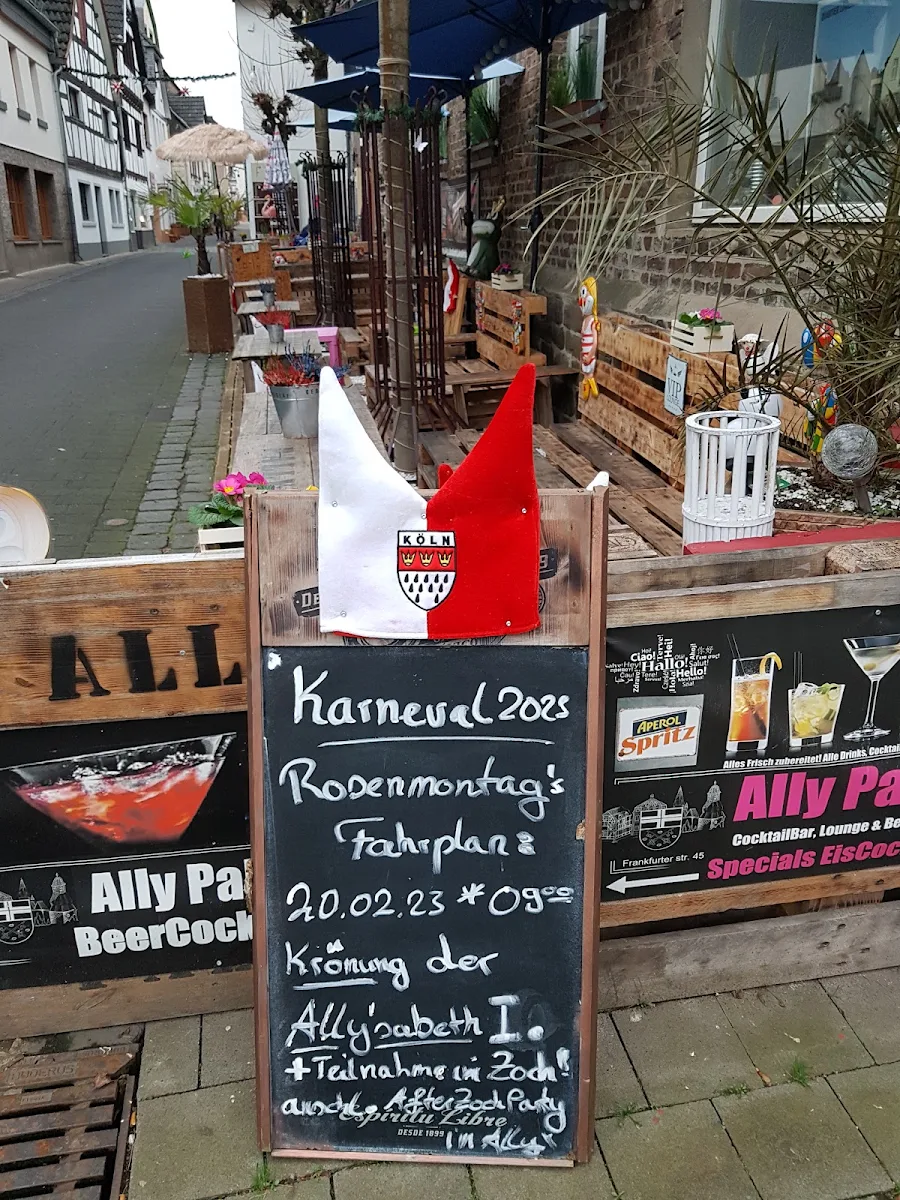 VIP
KÖLN
Karneval 2023
Rosenmontag's
Fahrplan:
20.02.23 * 09⁰⁰
Krönung der
Ally'sabeth I.
+ Teilnahme im Zoch!
anschl. After Zoch Party
Espíritu Libre
DESDE 1899
in Ally
ALL
Ally Pa
BeerCock
Ciao!
Hei!
Hallo!
Salut!
Hello!
APEROL
Spritz
Alles Frisch zubereitet! Alle Drinks, Cocktail
Ally Pa
CocktailBar, Lounge & Be
Frankfurter str. 45
Specials EisCoc